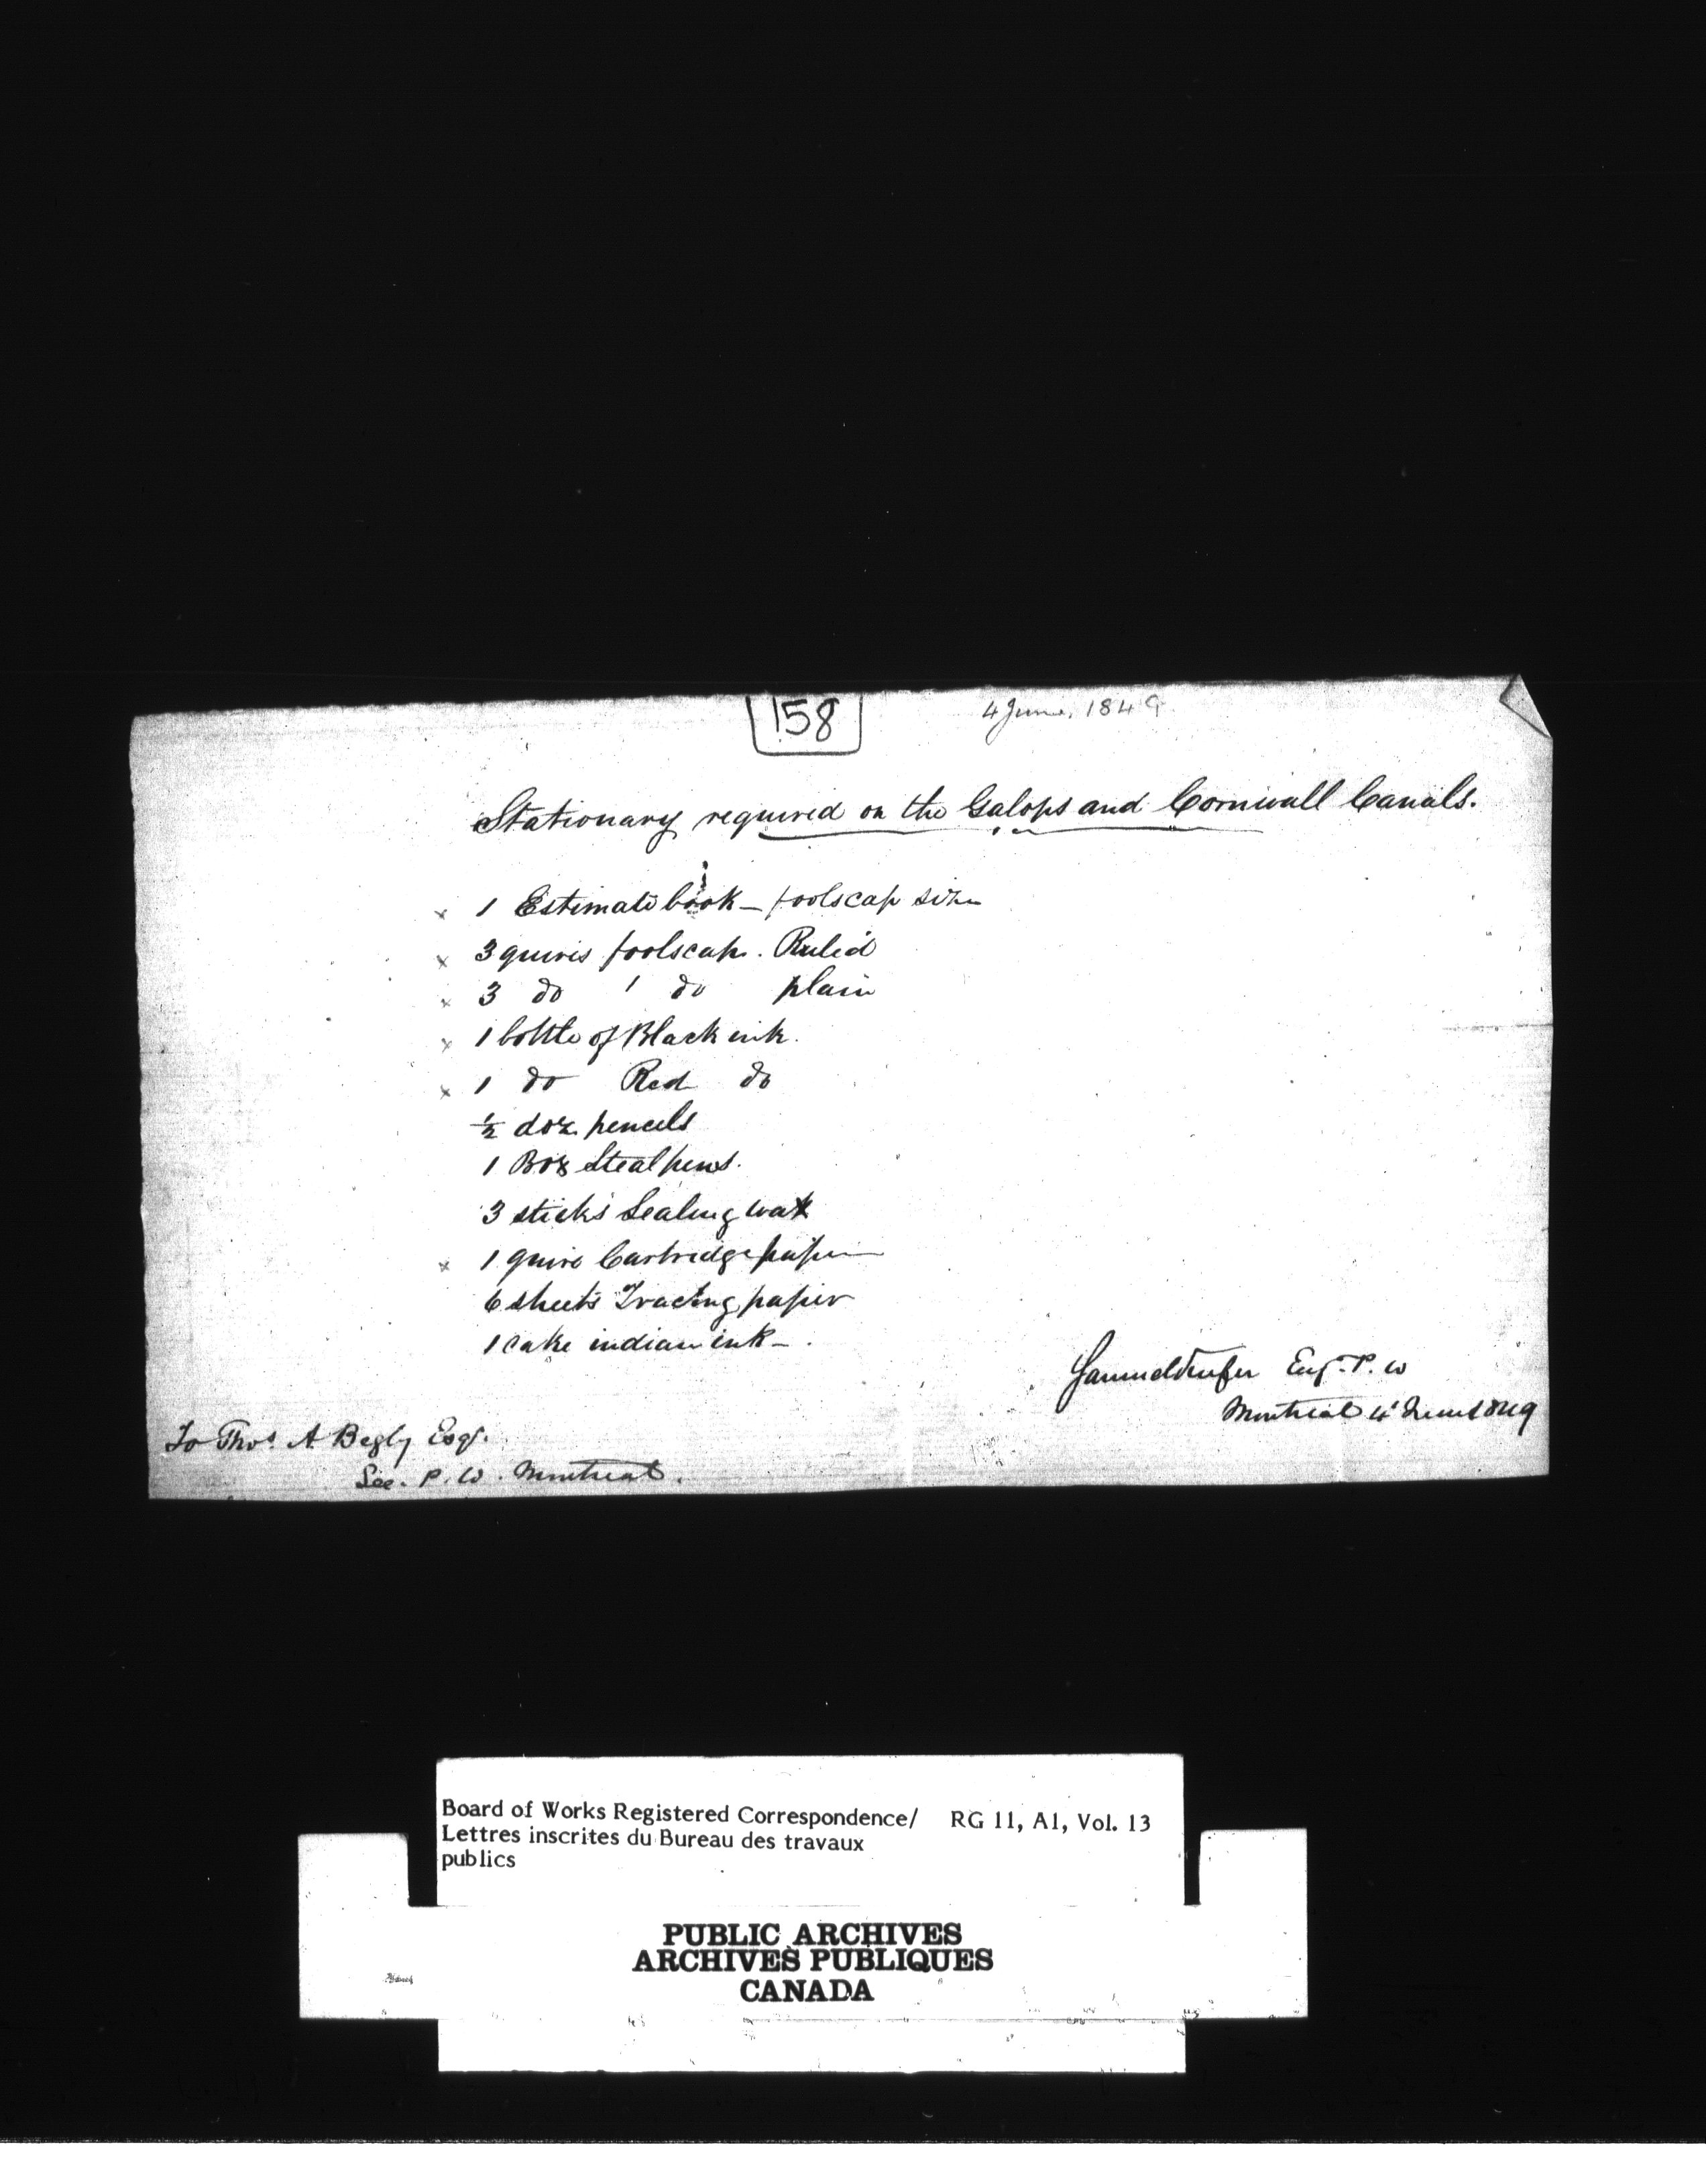 158
4 June, 1849
Stationary required on the Galops and Cornwall Canals.
x 1 Estimate book - foolscap size
x 3 quires foolscap. Ruled
x 3 do do plain
x 1 bottle of Black ink.
x 1 do Red do
½ doz. pencels
1 Box Steal pens.
3 sticks Sealing wax
x 1 quire Cartridge paper
6 sheets Tracing paper
1 cake indian ink -
Samuel Keefer Eng. P. W
Montreal 4 June 1849
To Thos. A Begly Esqr.
Sec. P. W. Montreal.
Board of Works Registered Correspondence/ RG 11, A1, Vol. 13
Lettres inscrites du Bureau des travaux
publics
PUBLIC ARCHIVES
ARCHIVES PUBLIQUES
CANADA